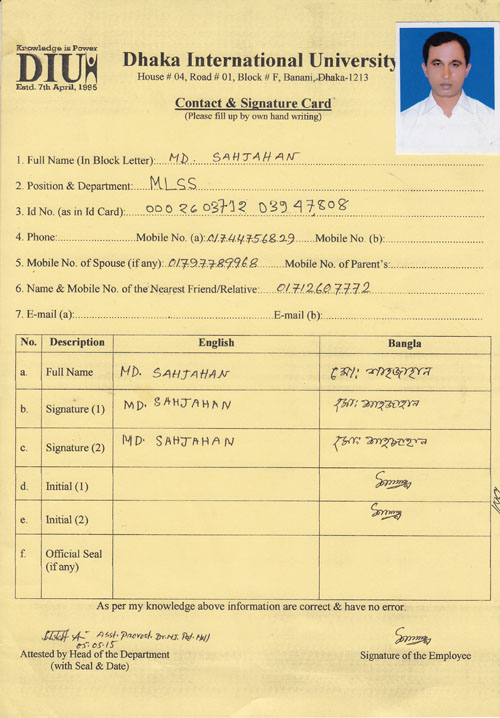 Knowledge is Power
DIU
Estd. 7th April, 1995
Dhaka International University
House # 04, Road # 01, Block # F, Banani, Dhaka-1213
Contact & Signature Card
(Please fill up by own hand writing)
1. Full Name (In Block Letter): MD. SAHJAHAN
2. Position & Department: MLSS
3. Id No. (as in Id Card): 000 2603712 03947808
4. Phone: Mobile No. (a): 01744756829 Mobile No. (b):
5. Mobile No. of Spouse (if any): 01797789968 Mobile No. of Parent's:
6. Name & Mobile No. of the Nearest Friend/Relative: 01712607772
7. E-mail (a): E-mail (b):
No. Description English Bangla
a. Full Name MD. SAHJAHAN মো: শাহজাহান
b. Signature (1) MD. SAHJAHAN মো: শাহজাহান
c. Signature (2) MD. SAHJAHAN মো: শাহজাহান
d. Initial (1)
e. Initial (2)
f. Official Seal
(if any)
As per my knowledge above information are correct & have no error.
Asst. Provost
05.05.15
Attested by Head of the Department Signature of the Employee
(with Seal & Date)